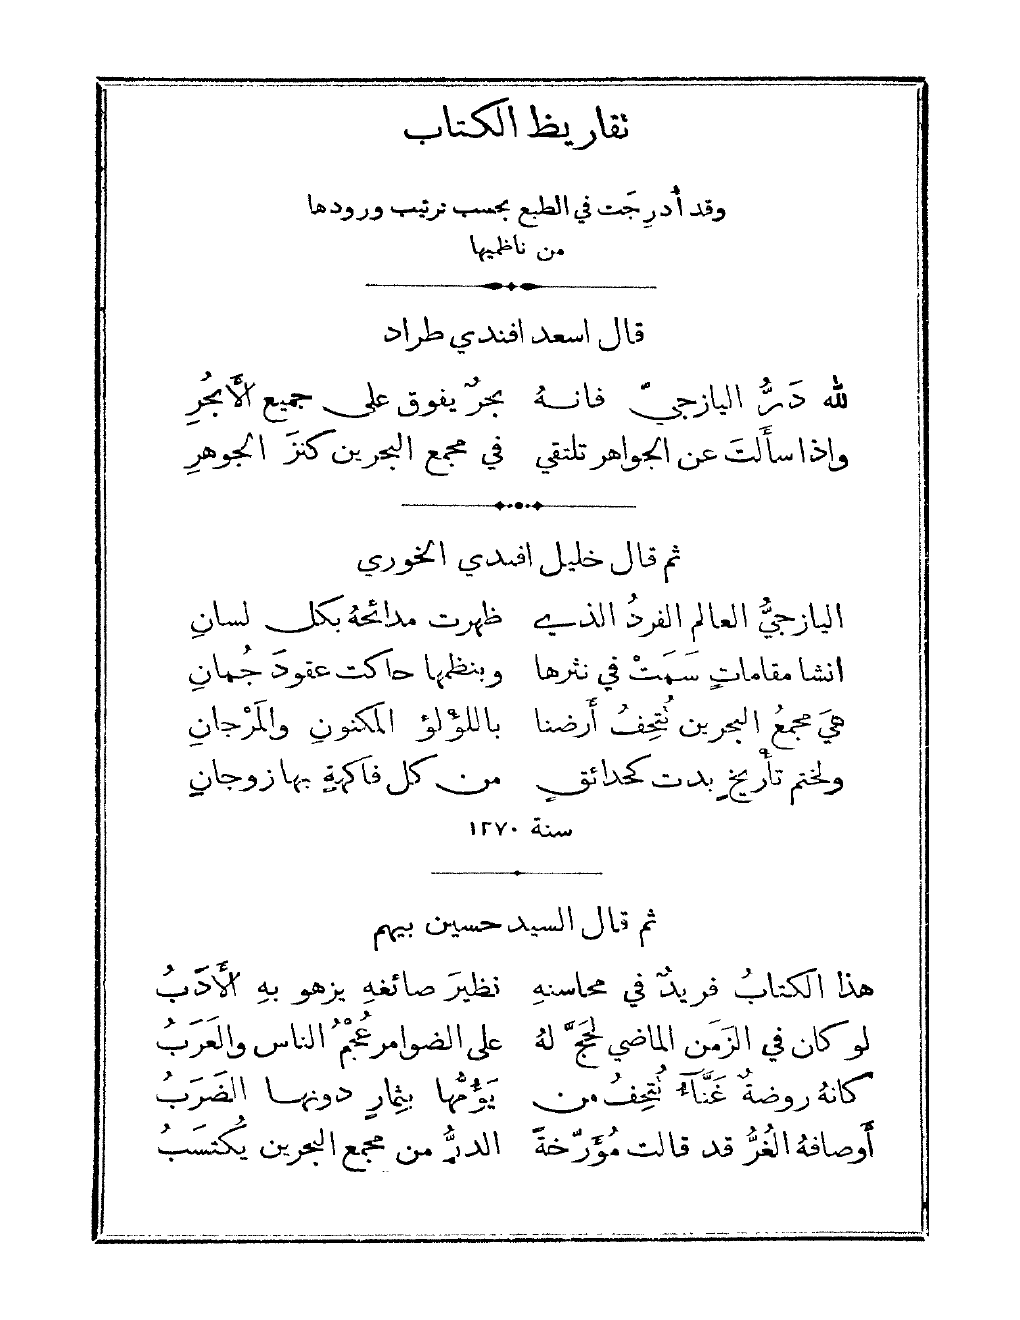 تقاريظ الكتاب
وقد أُدرِجَت في الطبع بحسب ترتيب ورودها
من ناظميها
قال اسعد افندي طراد
لله دَرُّ اليازجيّ فانهُ بحرٌ يفوق على جميع الأَبحُرِ
واذا سأَلتَ عن الجواهر تلتقي في مجمع البحرين كنزَ الجوهرِ
ثم قال خليل افندي الخوري
اليازجيُّ العالم الفردُ الذي ظهرت مدائحهُ بكل لسانِ
انشا مقاماتٍ سَمَتْ في نثرها وبنظمها حاكت عقودَ جُمانِ
هيَ مجمعُ البحرين تُتحِفُ أَرضنا باللؤْلؤِ المكنونِ والمَرْجانِ
ولختم تأْريخٍ بدت كحدائقٍ من كل فاكهةٍ بها زوجانِ
سنة ١٢٧٠
ثم قال السيد حسين بيهم
هذا الكتابُ فريدٌ في محاسنهِ نظيرَ صائغهِ يزهو بهِ الأَدَبُ
لو كان في الزَمَن الماضي لحجَّ لهُ على الضوامر عُجْمُ الناس والعَرَبُ
كانهُ روضةٌ غَنَّآءُ تُتحِفُ من يَؤُمُّها بثمارٍ دونها الضَرَبُ
أَوصافهُ الغُرُّ قد قالت مُؤَرّخةً الدرُّ من مجمع البحرين يُكتسَبُ